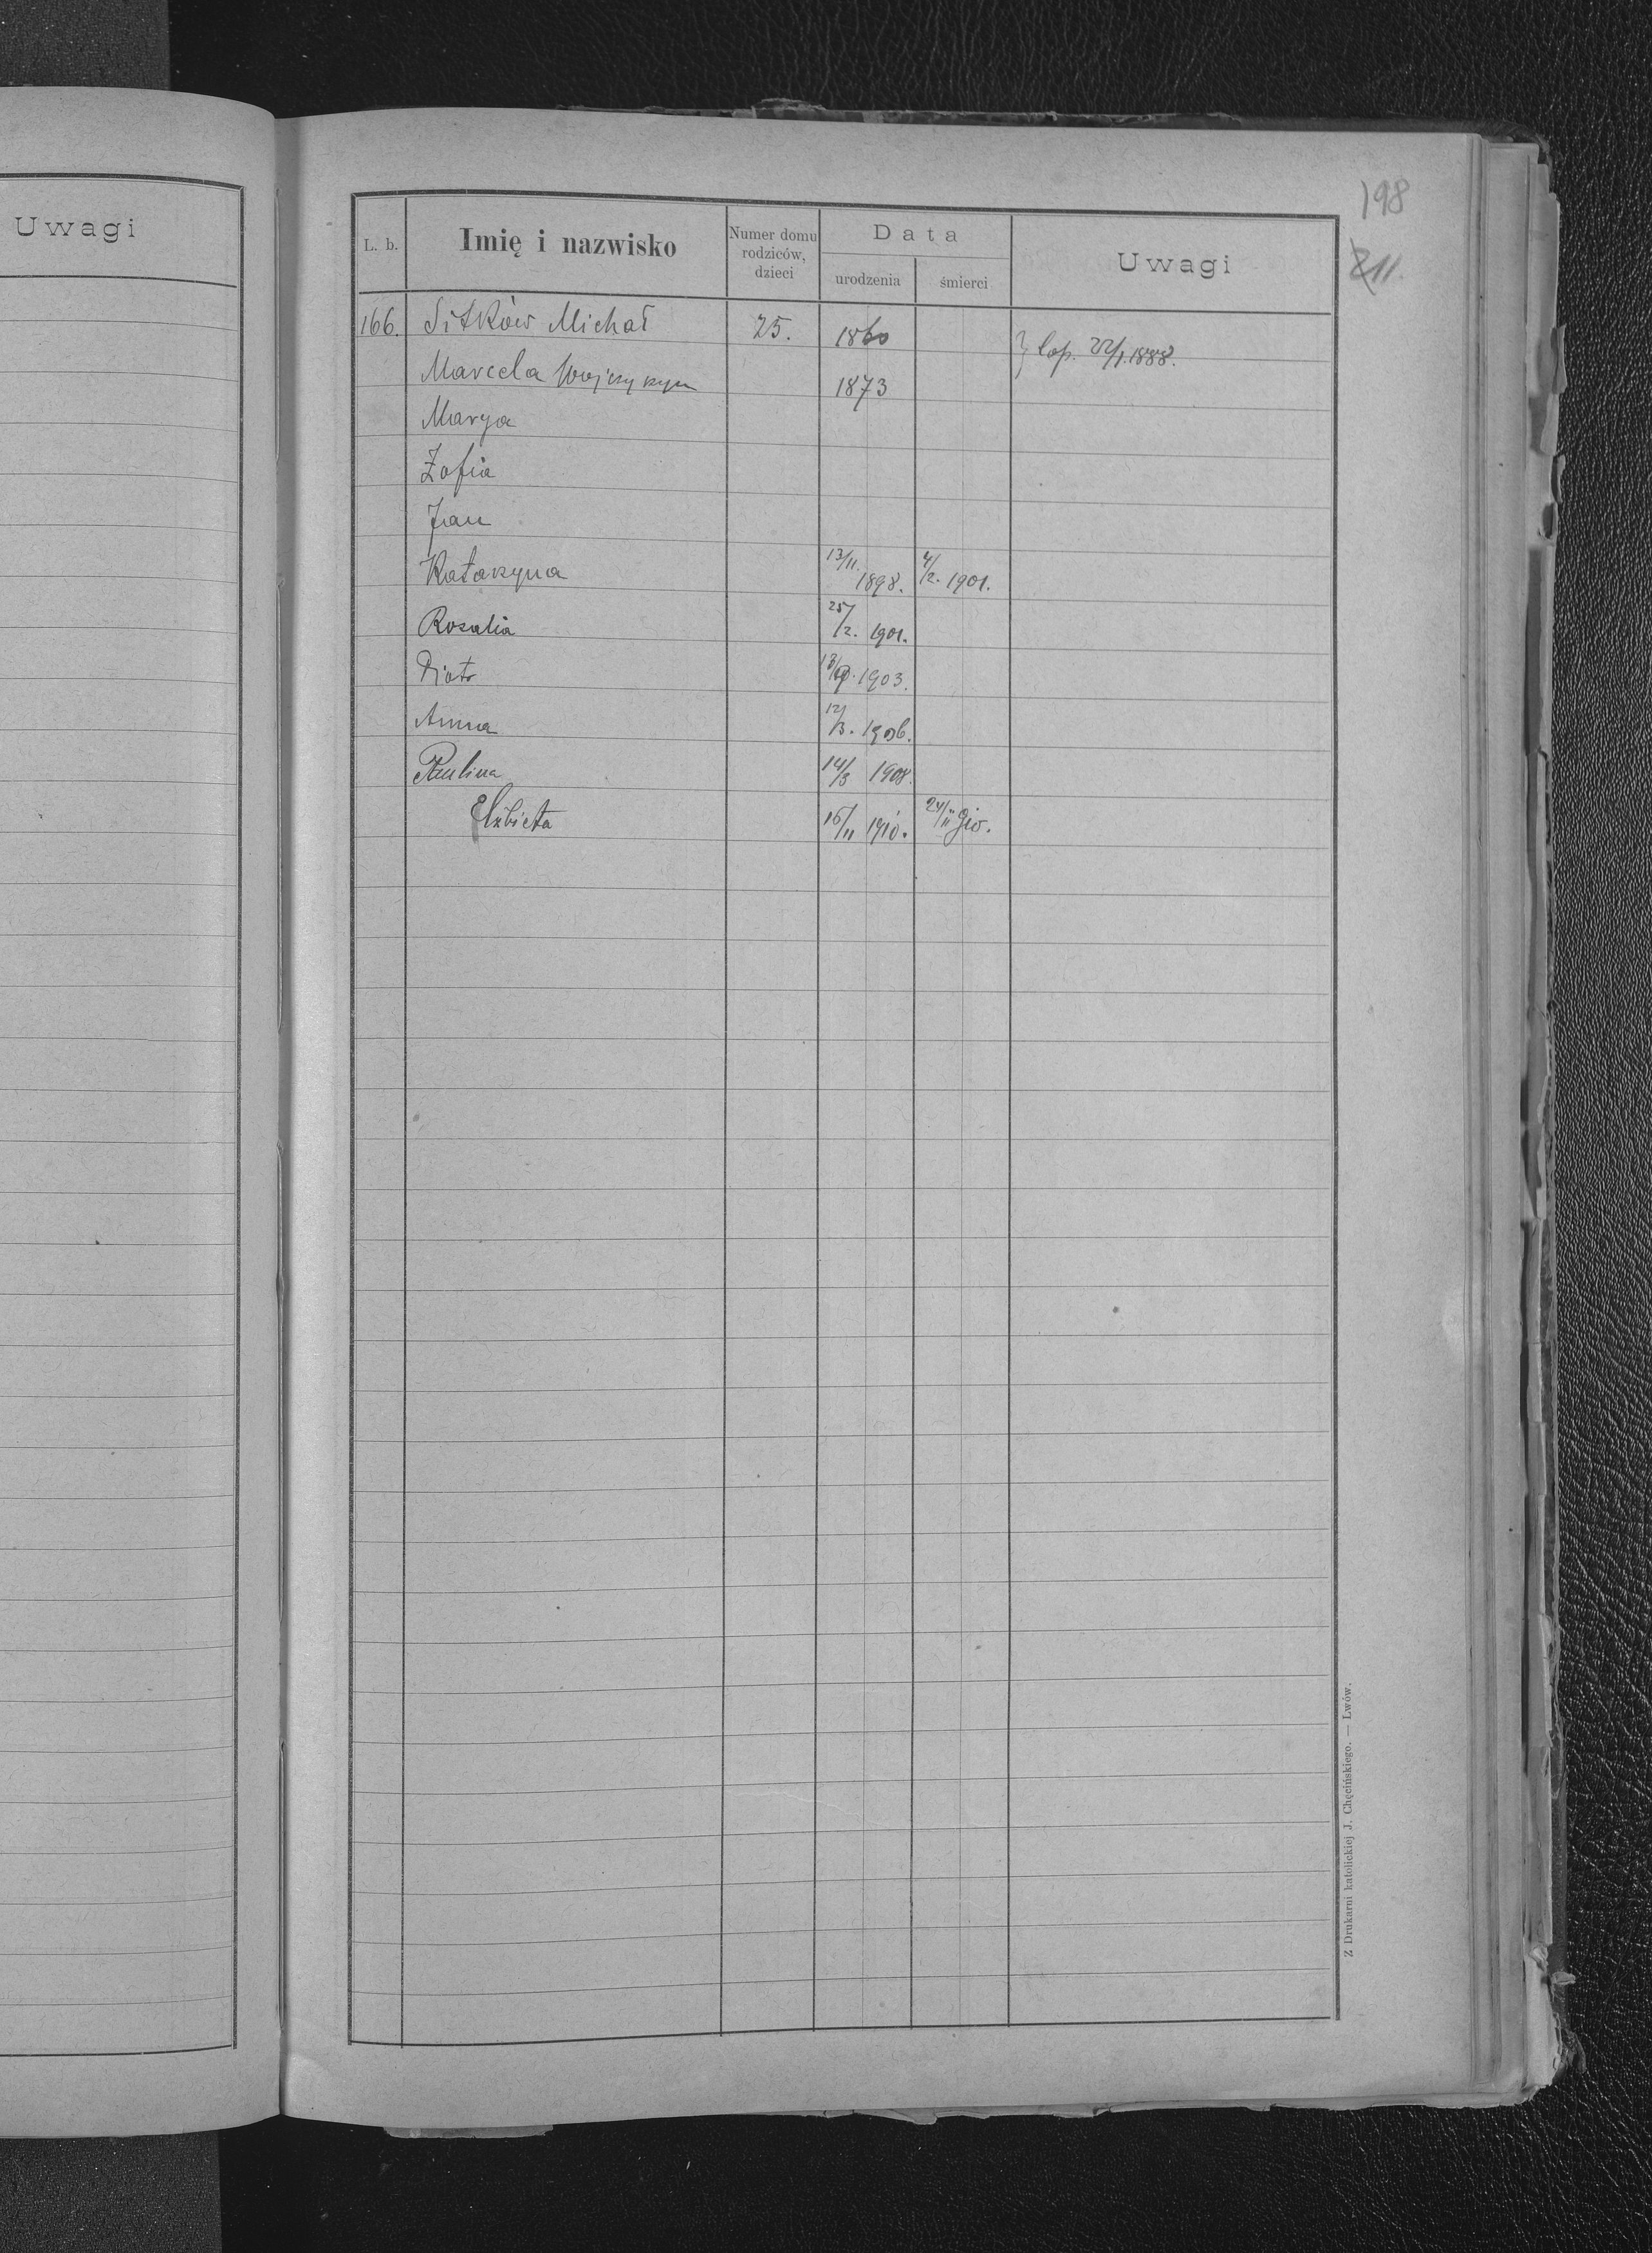 Uwagi
198
211.
L. b.
Imię i nazwisko
Numer domu
rodziców,
dzieci
Data
urodzenia
śmierci
Uwagi
166. Sitków Michał 25. 1860
} cop. 22/1.1888.
Marcela 1873
Marya
Zofia
Jan
Katarzyna 13/11. 1898. 4/2. 1901.
Rozalia 25/2. 1901.
Piotr 1903.
Anna 12/3. 1906.
Paulina 14/3 1908.
Elżbieta 16/11 1910. 24/11 910.
Z Drukarni katolickiej J. Chęcińskiego. — Lwów.